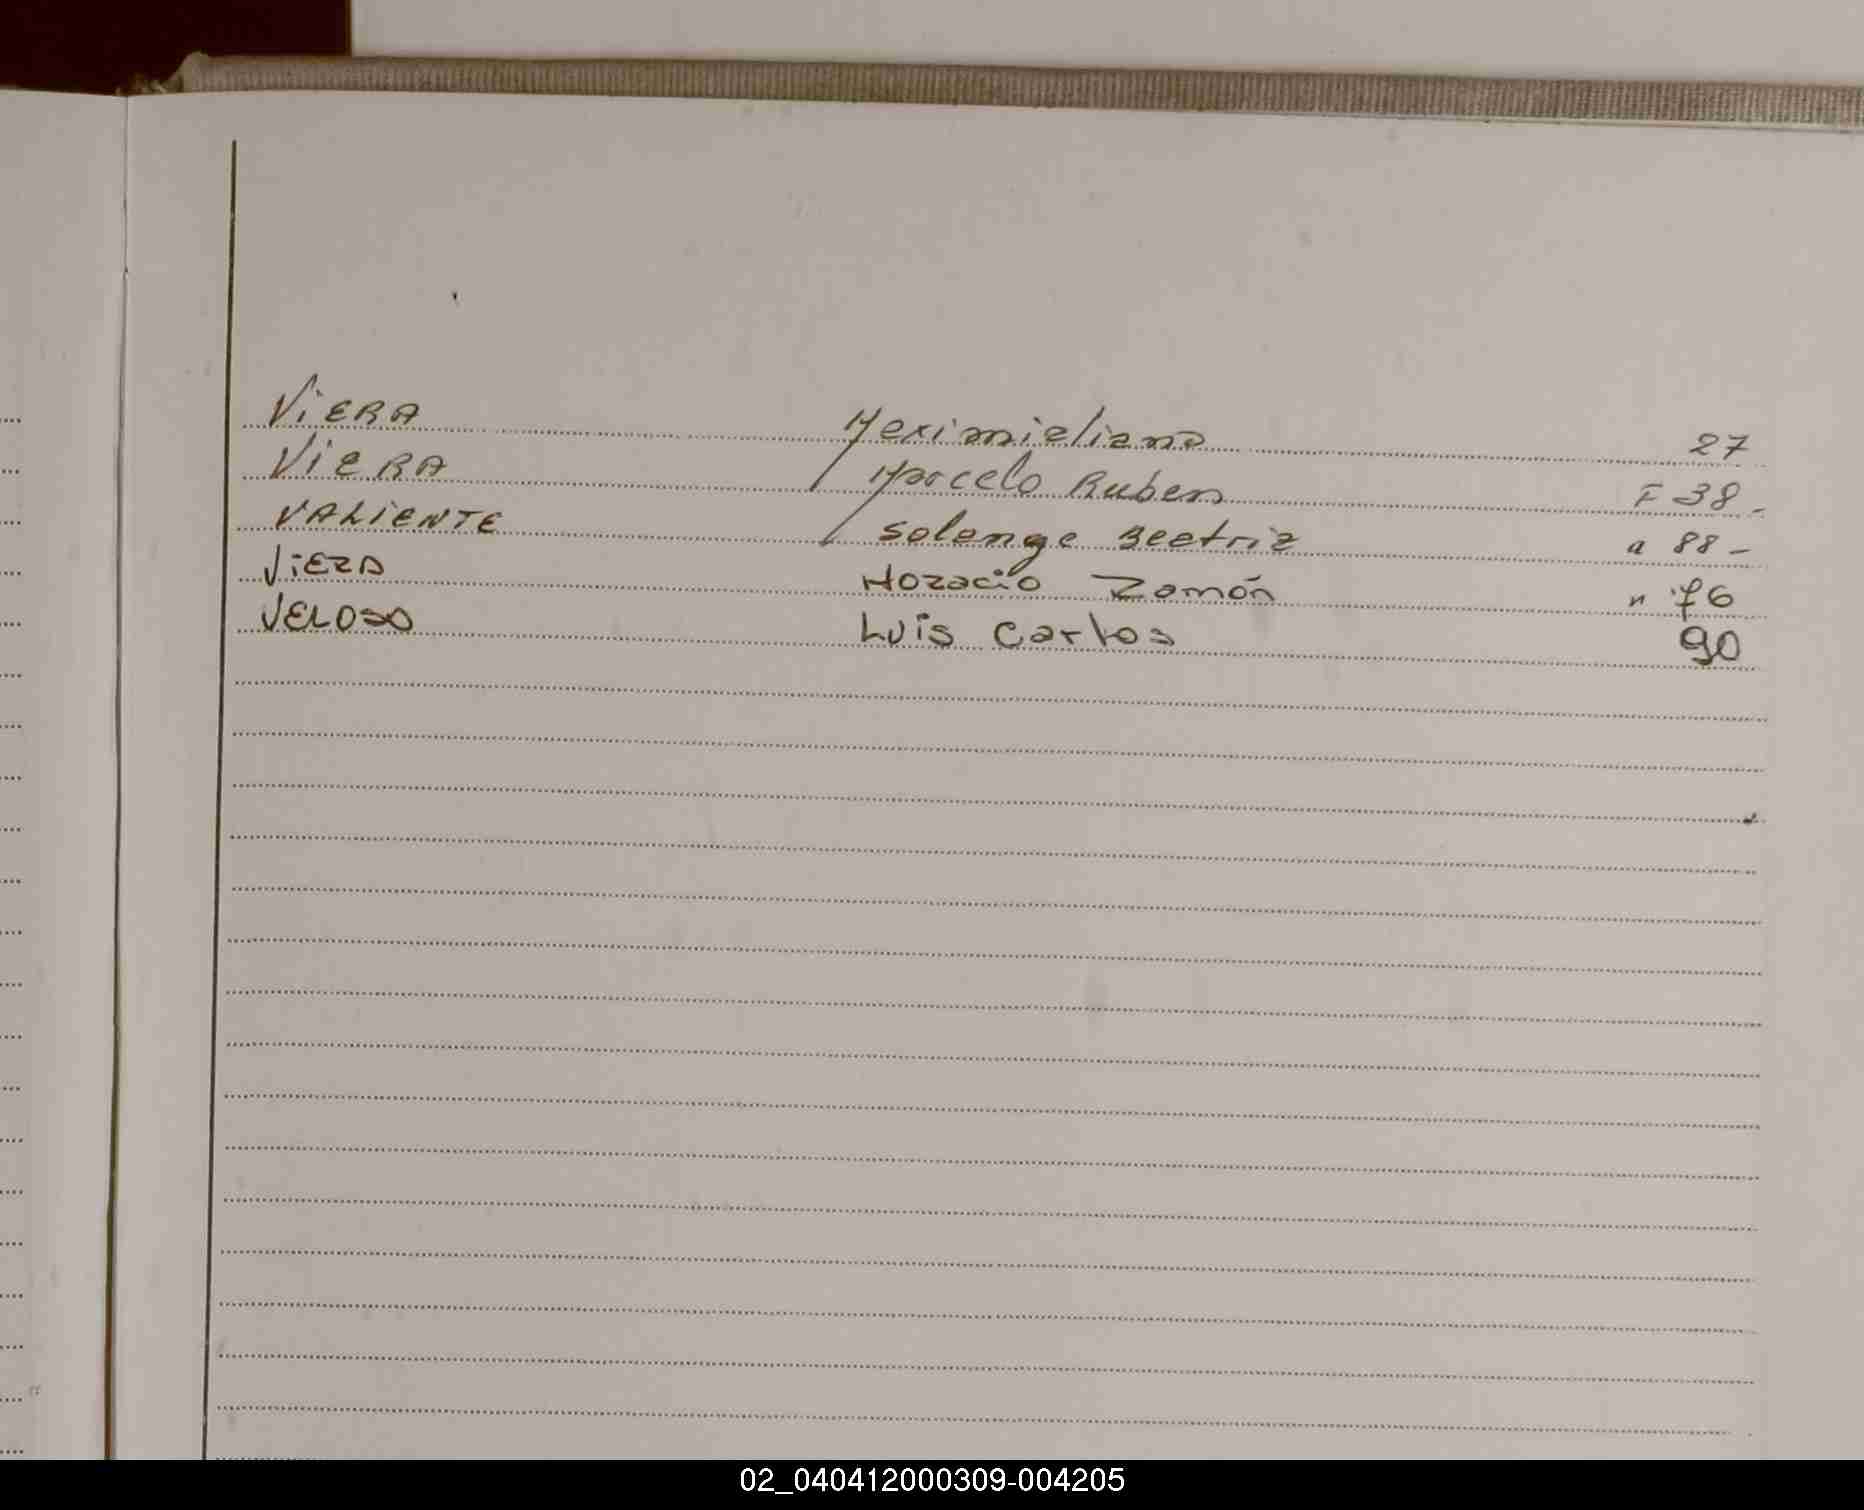 VIERA Maximialiano 27
VIERA Marcelo Ruben F 38-
VALIENTE Solange Beatriz a 88-
VIERA Horacio Ramón " 76
VELOSO Luis Carlos 90
02_040412000309-004205